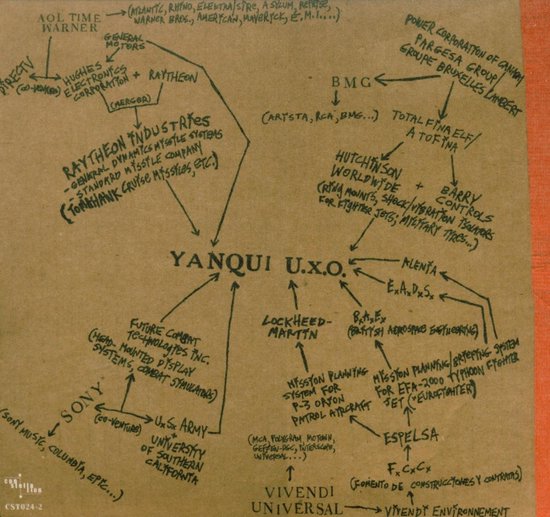 AOL TIME
WARNER
(ATLANTIC, RHINO, ELEKTRA/SIRE, ASYLUM, REPRISE,
WARNER BROS., AMERICAN, MAVERICK, E.M.I....)
GENERAL
MOTORS
DIRECTV
(CO-VENTURE)
HUGHES
ELECTRONICS
CORPORATION
+
RAYTHEON
(MERGER)
RAYTHEON INDUSTRIES
- GENERAL DYNAMICS MISSILE SYSTEMS
- STANDARD MISSILE COMPANY
(TOMAHAWK CRUISE MISSILES, ETC.)
POWER CORPORATION OF CANADA
PARGESA GROUP/
GROUPE BRUXELLES/LAMBERT
BMG
(ARISTA, RCA, BMG...)
TOTALFINAELF/
ATOFINA
HUTCHINSON
WORLDWIDE
+
BARRY
CONTROLS
(RING MOUNTS, SHOCK/VIBRATION ISOLATORS
FOR FIGHTER JETS, MILITARY TYRES...)
YANQUI U.X.O.
ALENIA
E.A.D.S.
LOCKHEED-
MARTIN
B.A.E.
(BRITISH AEROSPACE ENGINEERING)
FUTURE COMBAT
TECHNOLOGIES INC.
(HEAD-MOUNTED DISPLAY
SYSTEMS, COMBAT SIMULATORS)
MISSION PLANNING
SYSTEM FOR
P-3 ORION
PATROL AIRCRAFT
MISSION PLANNING/BRIEFING SYSTEM
FOR EFA-2000 TYPHOON FIGHTER
JET ("EUROFIGHTER)
SONY
(CO-VENTURE)
U.S. ARMY
+
UNIVERSITY
OF SOUTHERN
CALIFORNIA
(SONY MUSIC, COLUMBIA, EPIC...)
ESPELSA
(MCA, POLYGRAM, MOTOWN,
GEFFEN-DGC, INTERSCOPE,
UNIVERSAL....)
F.C.C.
(FOMENTO DE CONSTRUCCIONES Y CONTRATAS)
VIVENDI
UNIVERSAL
VIVENDI ENVIRONNEMENT
constellation
CST024-2